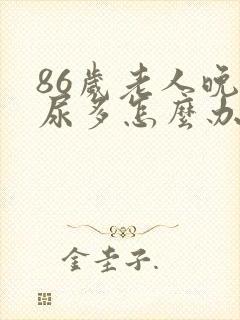 86歲老人晚
尿多怎麼办
金圭子.